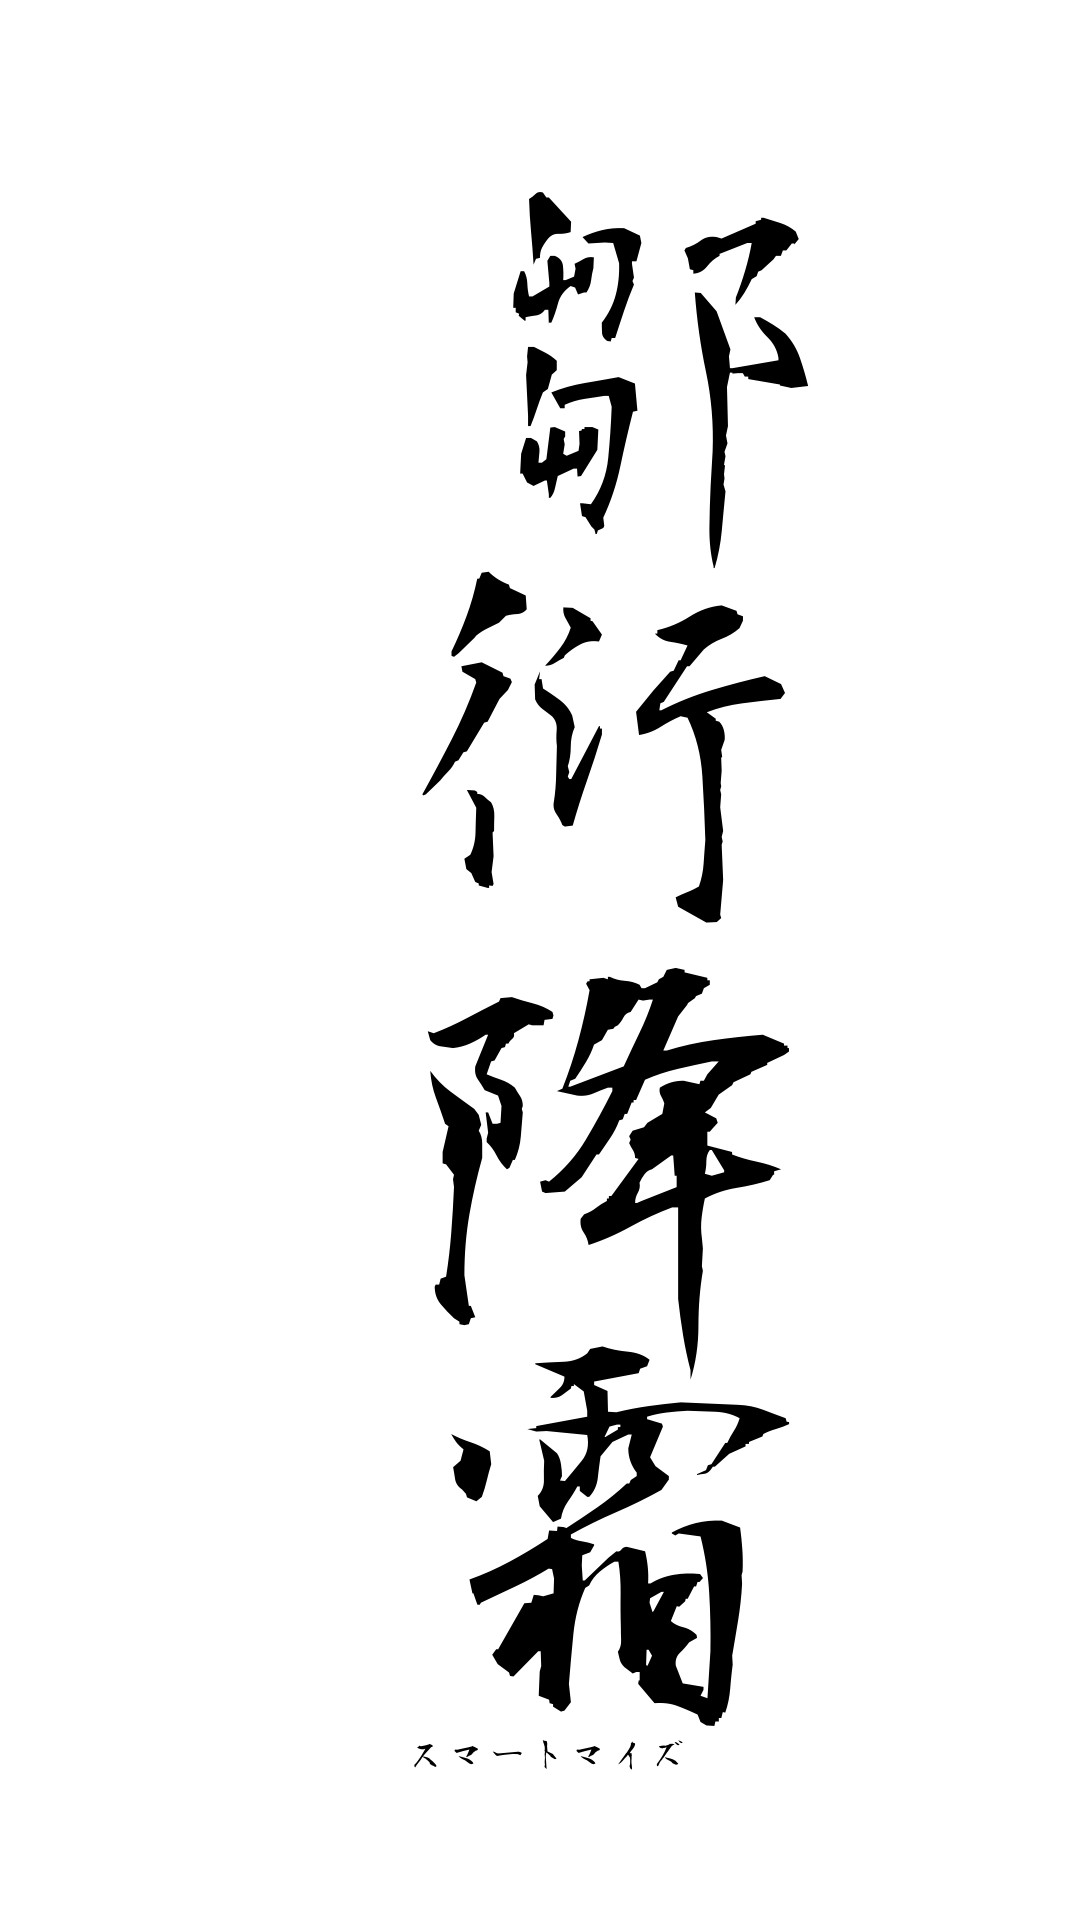 鄒衍降霜
スマートマイズ